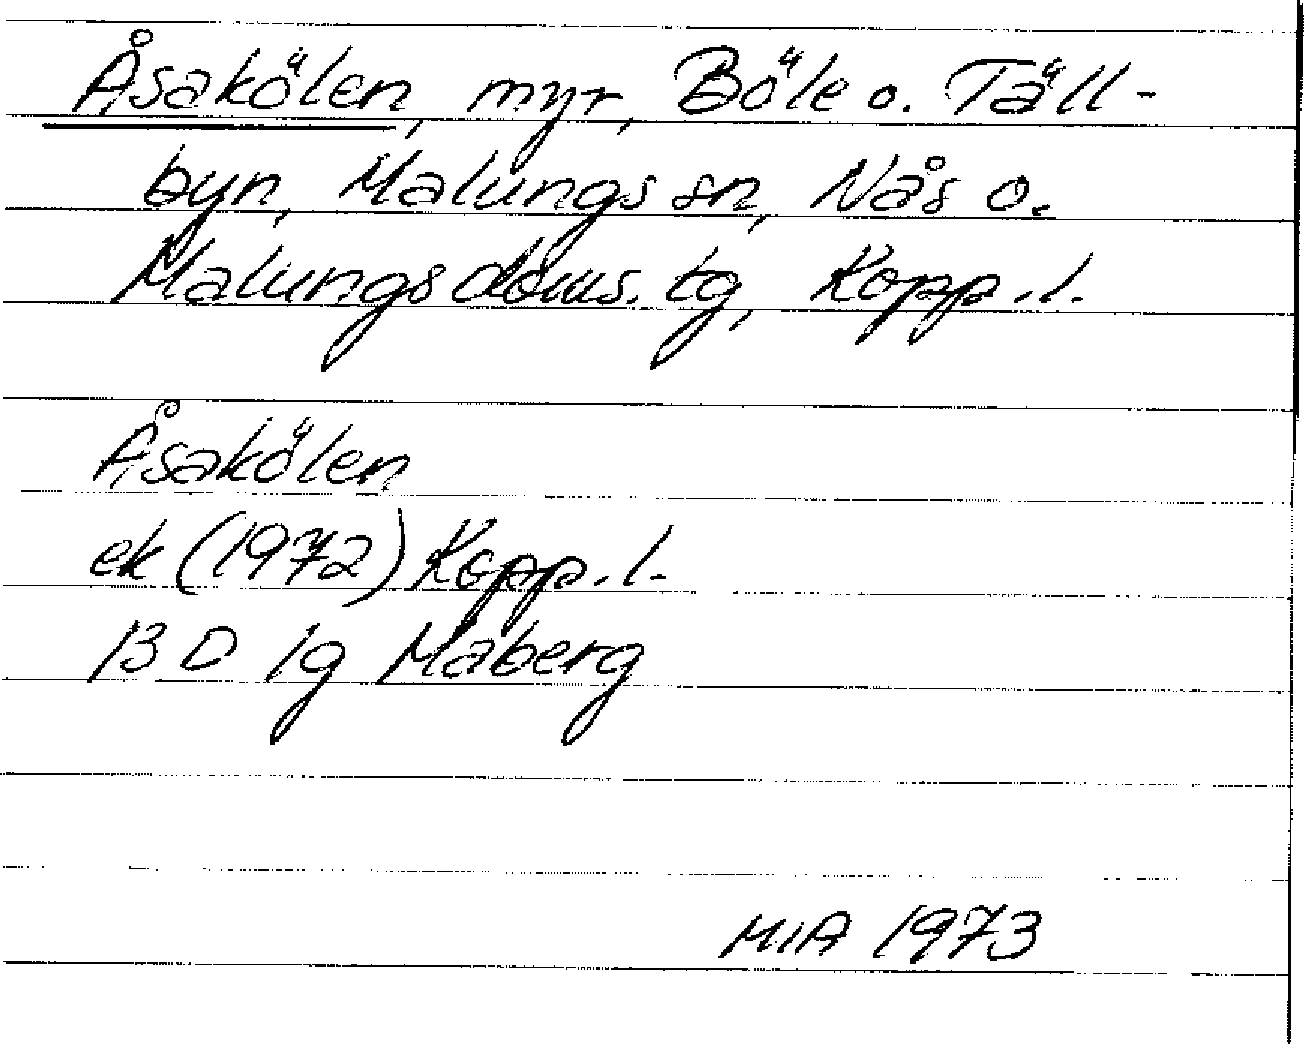 Åsakölen, myr, Böle o. Täll-
byn, Malungs sn, Nås o.
Malungs doms. tg, Kopp.l.
Åsakölen
ek (1972) Kopp.l.
13 D 1g Maberg
MIA 1973